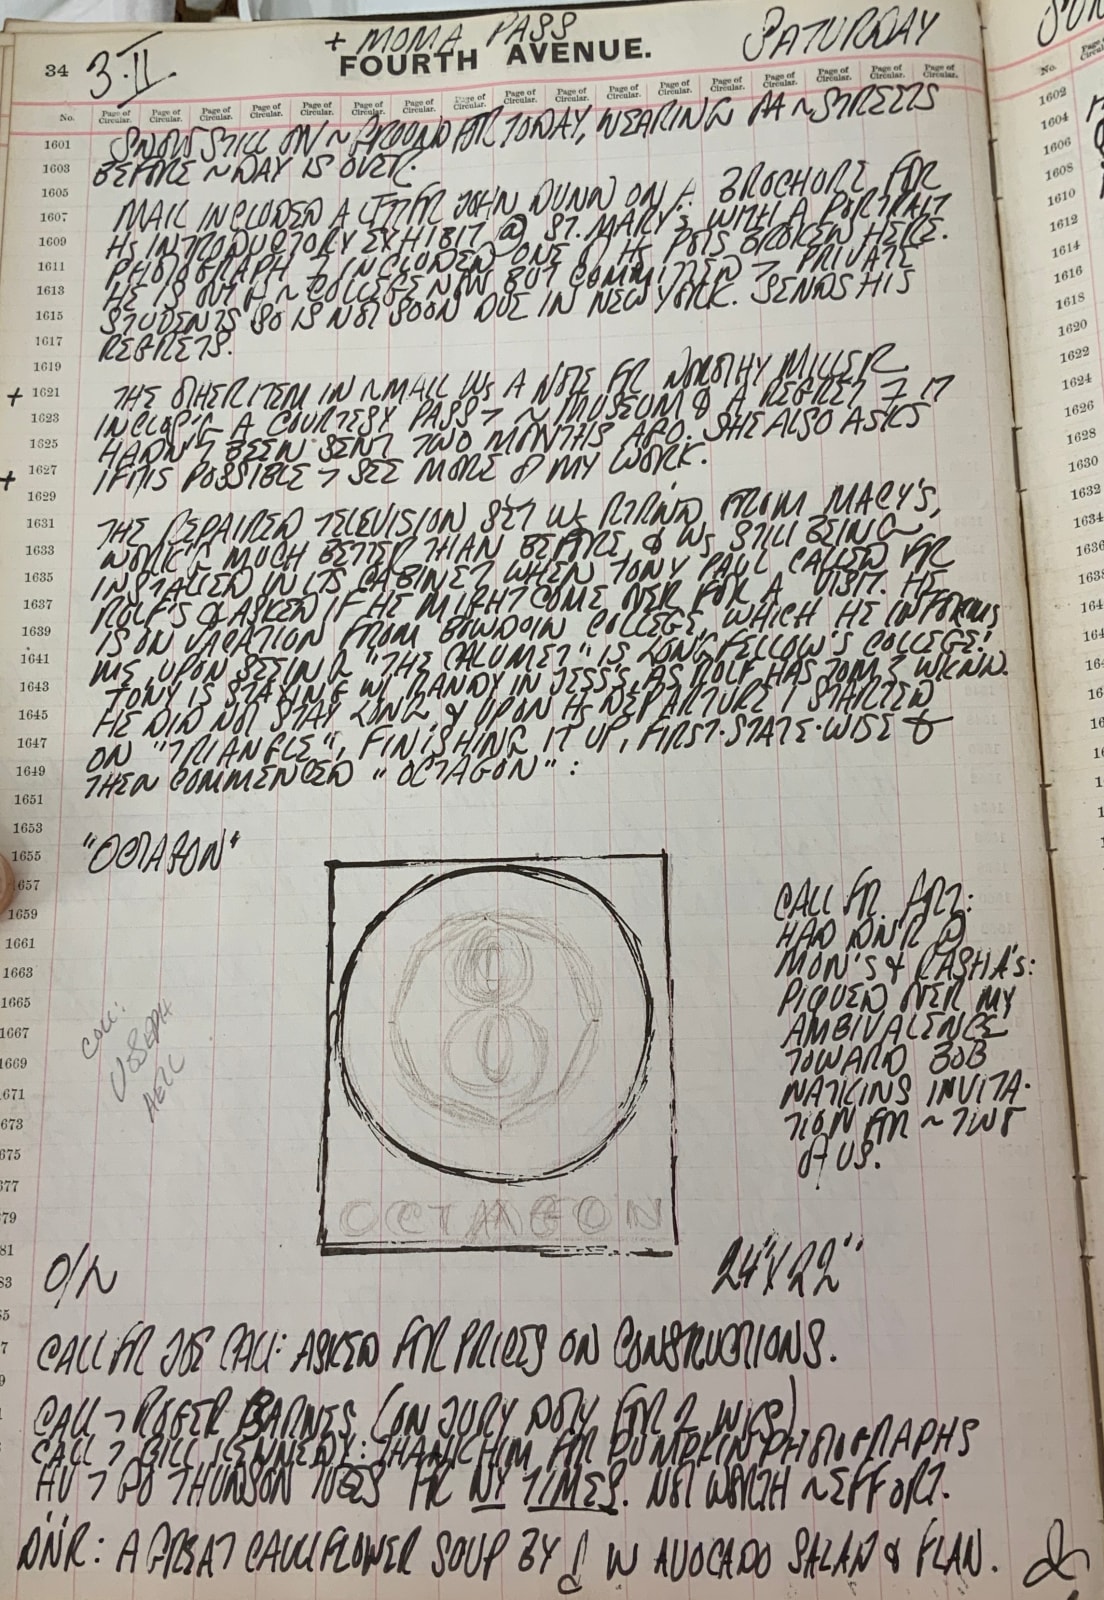 + MOMA PASS
34 3·II. FOURTH AVENUE. SATURDAY
No. Page of Circular. Page of Circular. Page of Circular. Page of Circular. Page of Circular. Page of Circular. Page of Circular. Page of Circular. Page of Circular. Page of Circular. Page of Circular. Page of Circular. Page of Circular. Page of Circular. Page of Circular. Page of Circular.
SNOW STILL ON ~ GROUND FOR TODAY, NEARING ~ STREETS
BEFORE ~ DAY IS OVER.
MAIL INCLUDED A LTTR FR JOHN DUNN ON A BROCHURE FOR
Hs INTRODUCTORY EXHIBIT @ ST. MARY'S WITH A PORTRAIT
PHOTOGRAPH & INCLUDED ONE OF Hs POTS BROKEN HERE.
HE IS OUT OF ~ COLLEGE NOW BUT COMMITTED > PRIVATE
STUDENTS SO IS NOT SOON DUE IN NEW YORK. SENDS HIS
REGRETS.
THE OTHER ITEM IN ~ MAIL Ws A NOTE FR DOROTHY MILLER
INCLOS'G A COURTESY PASS > ~ MUSEUM & A REGRET IT
HADN'T BEEN SENT TWO MONTHS AGO. SHE ALSO ASKS
IF ITS POSSIBLE > SEE MORE OF MY WORK.
THE REPAIRED TELEVISION SET Ws RTRN'D FROM MACY'S,
WORK'G MUCH BETTER THAN BEFORE & Ws STILL BEING
INSTALLED IN ITS CABINET WHEN TONY PAUL CALLED FR
ROLF'S & ASKED IF HE MIGHT COME OVER FOR A VISIT. HE
IS ON VACATION FROM BOWDOIN COLLEGE, WHICH HE INFORMS
ME, UPON SEEING "THE CALUMET" IS LONGFELLOW'S COLLEGE!
TONY IS STAYING W/ RANDY IN JESS'S, AS ROLF HAS TOM'S WKND.
HE DID NOT STAY LONG & UPON Hs DEPARTURE I STARTED
ON "TRIANGLE", FINISHING IT UP, FIRST-STATE-WISE &
THEN COMMENCED "OCTAGON":
"OCTAGON"
8
OCTAGON
COLL:
JOSEPH
AELL
CALL FR. ART:
HAD DN'R @
MON'S & RASHA'S:
PIQUED OVER MY
AMBIVALENCE
TOWARD BOB
NATKINS INVITA-
TION FOR ~ TWO
OF US.
O/~
24" X 22"
CALL FR JOE CALL: ASKED FOR PRICES ON CONSTRUCTIONS.
CALL > ROGER BARNES (ON JURY DUTY FOR 2 WKS)
CALL > BILL KENNEDY: THANK HIM FOR PUMPKIN PHOTOGRAPHS
HV > GO THOMSON TUES FR NY TIMES. NOT WORTH ~ EFFORT.
DN'R: A GREAT CAULIFLOWER SOUP BY W AVOCADO SALAD & FLAN.
1601
1603
1605
1607
1609
1611
1613
1615
1617
1619
+ 1621
1623
1625
+ 1627
1629
1631
1633
1635
1637
1639
1641
1643
1645
1647
1649
1651
1653
1655
1657
1659
1661
1663
1665
1667
1669
1671
1673
1675
1677
1679
No.
1602
1604
1606
1608
1610
1612
1614
1616
1618
1620
1622
1624
1626
1628
1630
1632
1634
1636
1638